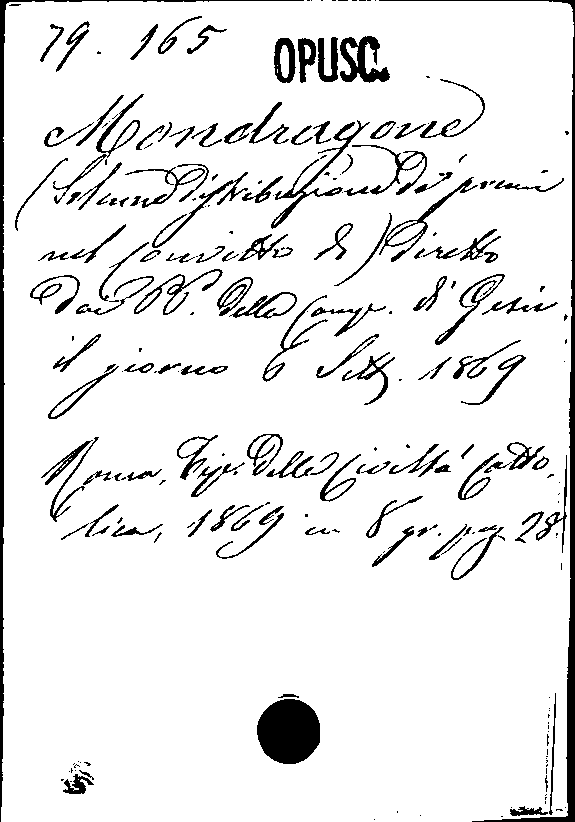 79. 165 OPUSC.
Mondragone
(Solenne Distribuzione de' premi
nel Convitto di) Diretto
Dai PP. della Comp. di Gesù
il giorno 6 Sett. 1869
Roma, Tip. della Civiltà Catto-
lica, 1869 in 8 gr. pag 28.